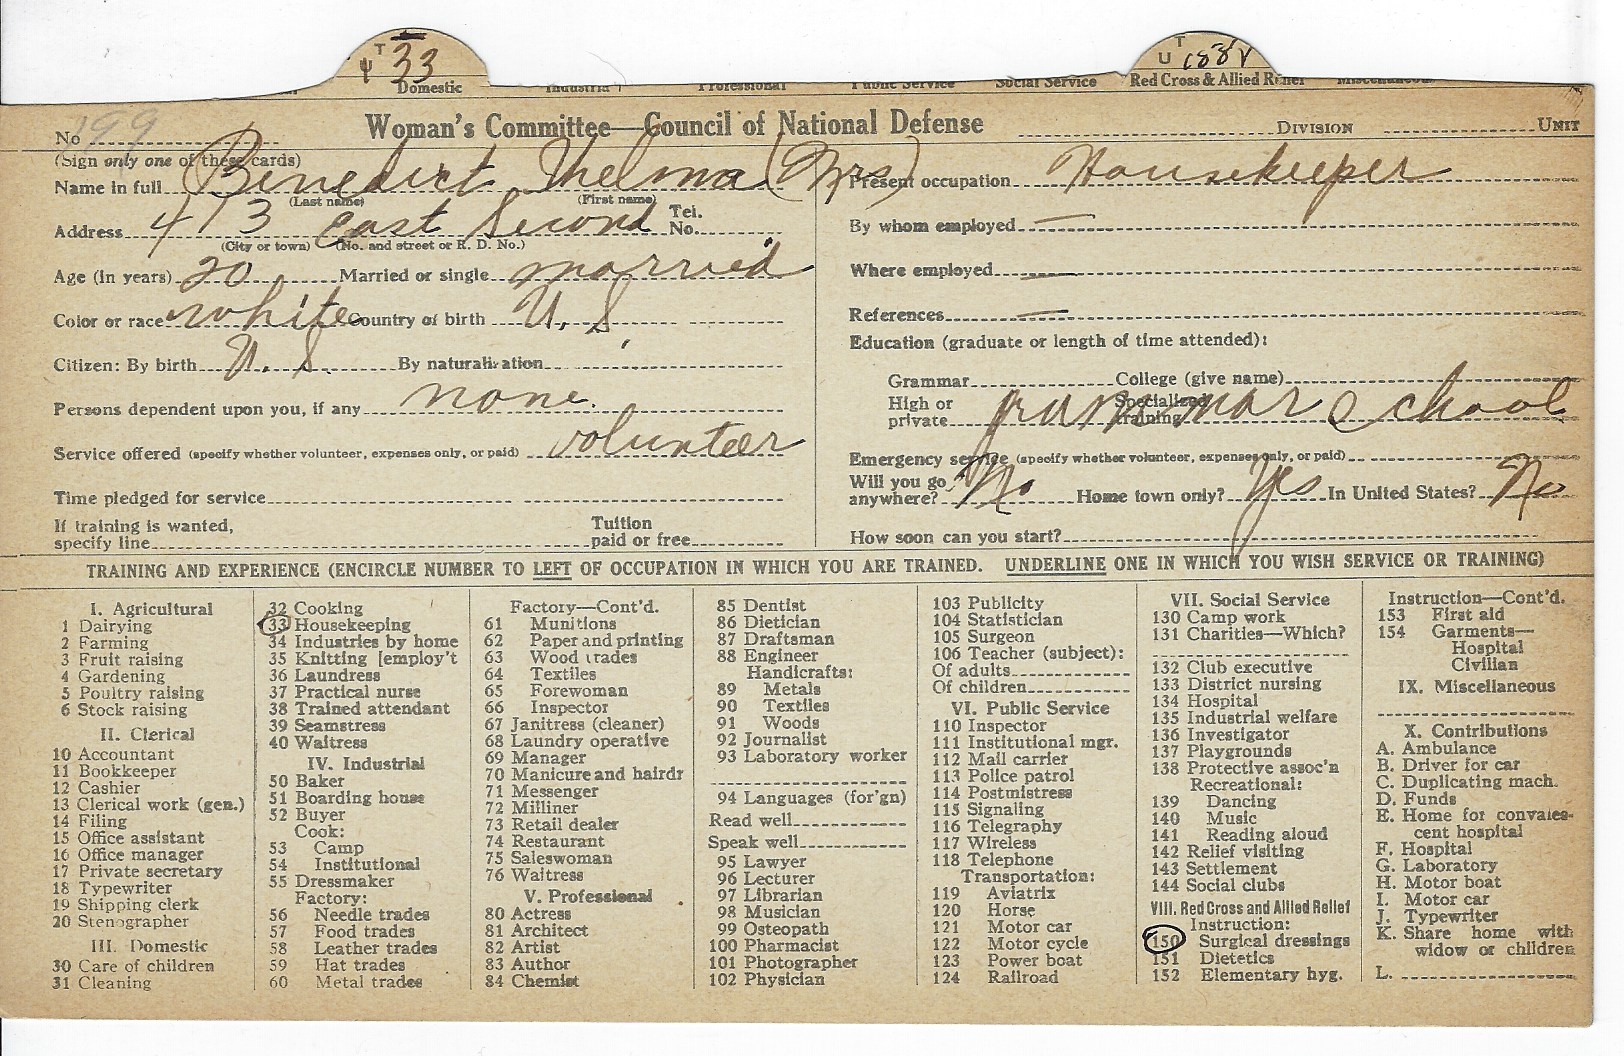 T 33
U T
Domestic Professional Public Service Social Service Red Cross & Allied Relief
Woman's Committee—Council of National Defense DIVISION UNIT
No 199
(Sign only one of these cards)
Name in full Benedict Thelma (Mrs)
(Last name) (First name)
Address 413 East Second Tel. No.
(City or town) (No. and street or R. D. No.)
Age (in years) 20 Married or single married
Color or race white Country of birth U. S
Citizen: By birth U. S. By naturalization
Persons dependent upon you, if any none.
Service offered (specify whether volunteer, expenses only, or paid) volunteer
Time pledged for service
If training is wanted, specify line Tuition paid or free
Present occupation Housekeeper
By whom employed —
Where employed —
References —
Education (graduate or length of time attended):
Grammar College (give name)
High or private Specialized training grammar School
Emergency service (specify whether volunteer, expenses only, or paid)
Will you go anywhere? No Home town only? Yes In United States? No
How soon can you start?
TRAINING AND EXPERIENCE (ENCIRCLE NUMBER TO LEFT OF OCCUPATION IN WHICH YOU ARE TRAINED. UNDERLINE ONE IN WHICH YOU WISH SERVICE OR TRAINING)
I. Agricultural
1 Dairying
2 Farming
3 Fruit raising
4 Gardening
5 Poultry raising
6 Stock raising
II. Clerical
10 Accountant
11 Bookkeeper
12 Cashier
13 Clerical work (gen.)
14 Filing
15 Office assistant
16 Office manager
17 Private secretary
18 Typewriter
19 Shipping clerk
20 Stenographer
III. Domestic
30 Care of children
31 Cleaning
32 Cooking
33 Housekeeping
34 Industries by home
35 Knitting [employ't
36 Laundress
37 Practical nurse
38 Trained attendant
39 Seamstress
40 Waitress
IV. Industrial
50 Baker
51 Boarding house
52 Buyer
Cook:
53 Camp
54 Institutional
55 Dressmaker
Factory:
56 Needle trades
57 Food trades
58 Leather trades
59 Hat trades
60 Metal trades
Factory—Cont'd.
61 Munitions
62 Paper and printing
63 Wood trades
64 Textiles
65 Forewoman
66 Inspector
67 Janitress (cleaner)
68 Laundry operative
69 Manager
70 Manicure and hairdr
71 Messenger
72 Milliner
73 Retail dealer
74 Restaurant
75 Saleswoman
76 Waitress
V. Professional
80 Actress
81 Architect
82 Artist
83 Author
84 Chemist
85 Dentist
86 Dietician
87 Draftsman
88 Engineer
Handicrafts:
89 Metals
90 Textiles
91 Woods
92 Journalist
93 Laboratory worker
94 Languages (for'gn)
Read well
Speak well
95 Lawyer
96 Lecturer
97 Librarian
98 Musician
99 Osteopath
100 Pharmacist
101 Photographer
102 Physician
103 Publicity
104 Statistician
105 Surgeon
106 Teacher (subject):
Of adults
Of children
VI. Public Service
110 Inspector
111 Institutional mgr.
112 Mail carrier
113 Police patrol
114 Postmistress
115 Signaling
116 Telegraphy
117 Wireless
118 Telephone
Transportation:
119 Aviatrix
120 Horse
121 Motor car
122 Motor cycle
123 Power boat
124 Railroad
VII. Social Service
130 Camp work
131 Charities—Which?
132 Club executive
133 District nursing
134 Hospital
135 Industrial welfare
136 Investigator
137 Playgrounds
138 Protective assoc'n
Recreational:
139 Dancing
140 Music
141 Reading aloud
142 Relief visiting
143 Settlement
144 Social clubs
VIII. Red Cross and Allied Relief
Instruction:
150 Surgical dressings
151 Dietetics
152 Elementary hyg.
Instruction—Cont'd.
153 First aid
154 Garments—
Hospital
Civilian
IX. Miscellaneous
X. Contributions
A. Ambulance
B. Driver for car
C. Duplicating mach.
D. Funds
E. Home for convales-
cent hospital
F. Hospital
G. Laboratory
H. Motor boat
I. Motor car
J. Typewriter
K. Share home with
widow or children
L.